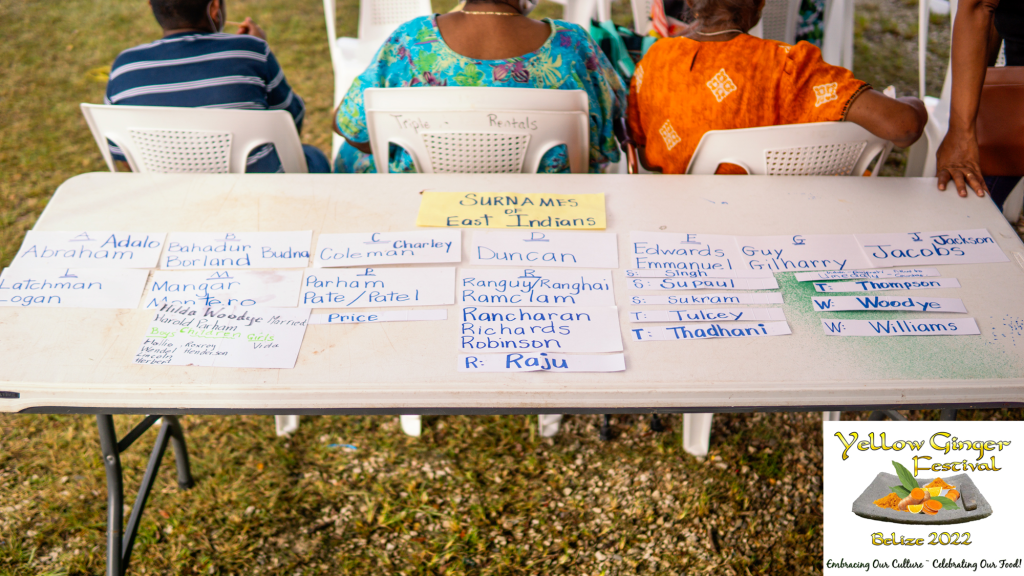 Triple Rentals
SURNAMES
OF
East Indians
A
Adalo
Abraham
B
Bahadur Budna
Borland
C
Charley
Coleman
D
Duncan
E
Edwards
Emmanuel
G
Guy
Gilharry
J
Jackson
Jacobs
L
Latchman
Logan
M
Mangar
Montero
Hilda Woodye Married
Harold Parham
Boys Children Girls
Vida
Henderson
Herbert
P
Parham
Pate/Patel
Price
R
Ranguy/Ranghai
Ramclam
Rancharan
Richards
Robinson
R: Raju
S: Singh
S: Supaul
S: Sukram
T: Tulcey
T: Thadhani
T: Thompson
W: Woodye
W: Williams
Yellow Ginger
Festival
Belize 2022
Embracing Our Culture ~ Celebrating Our Food!